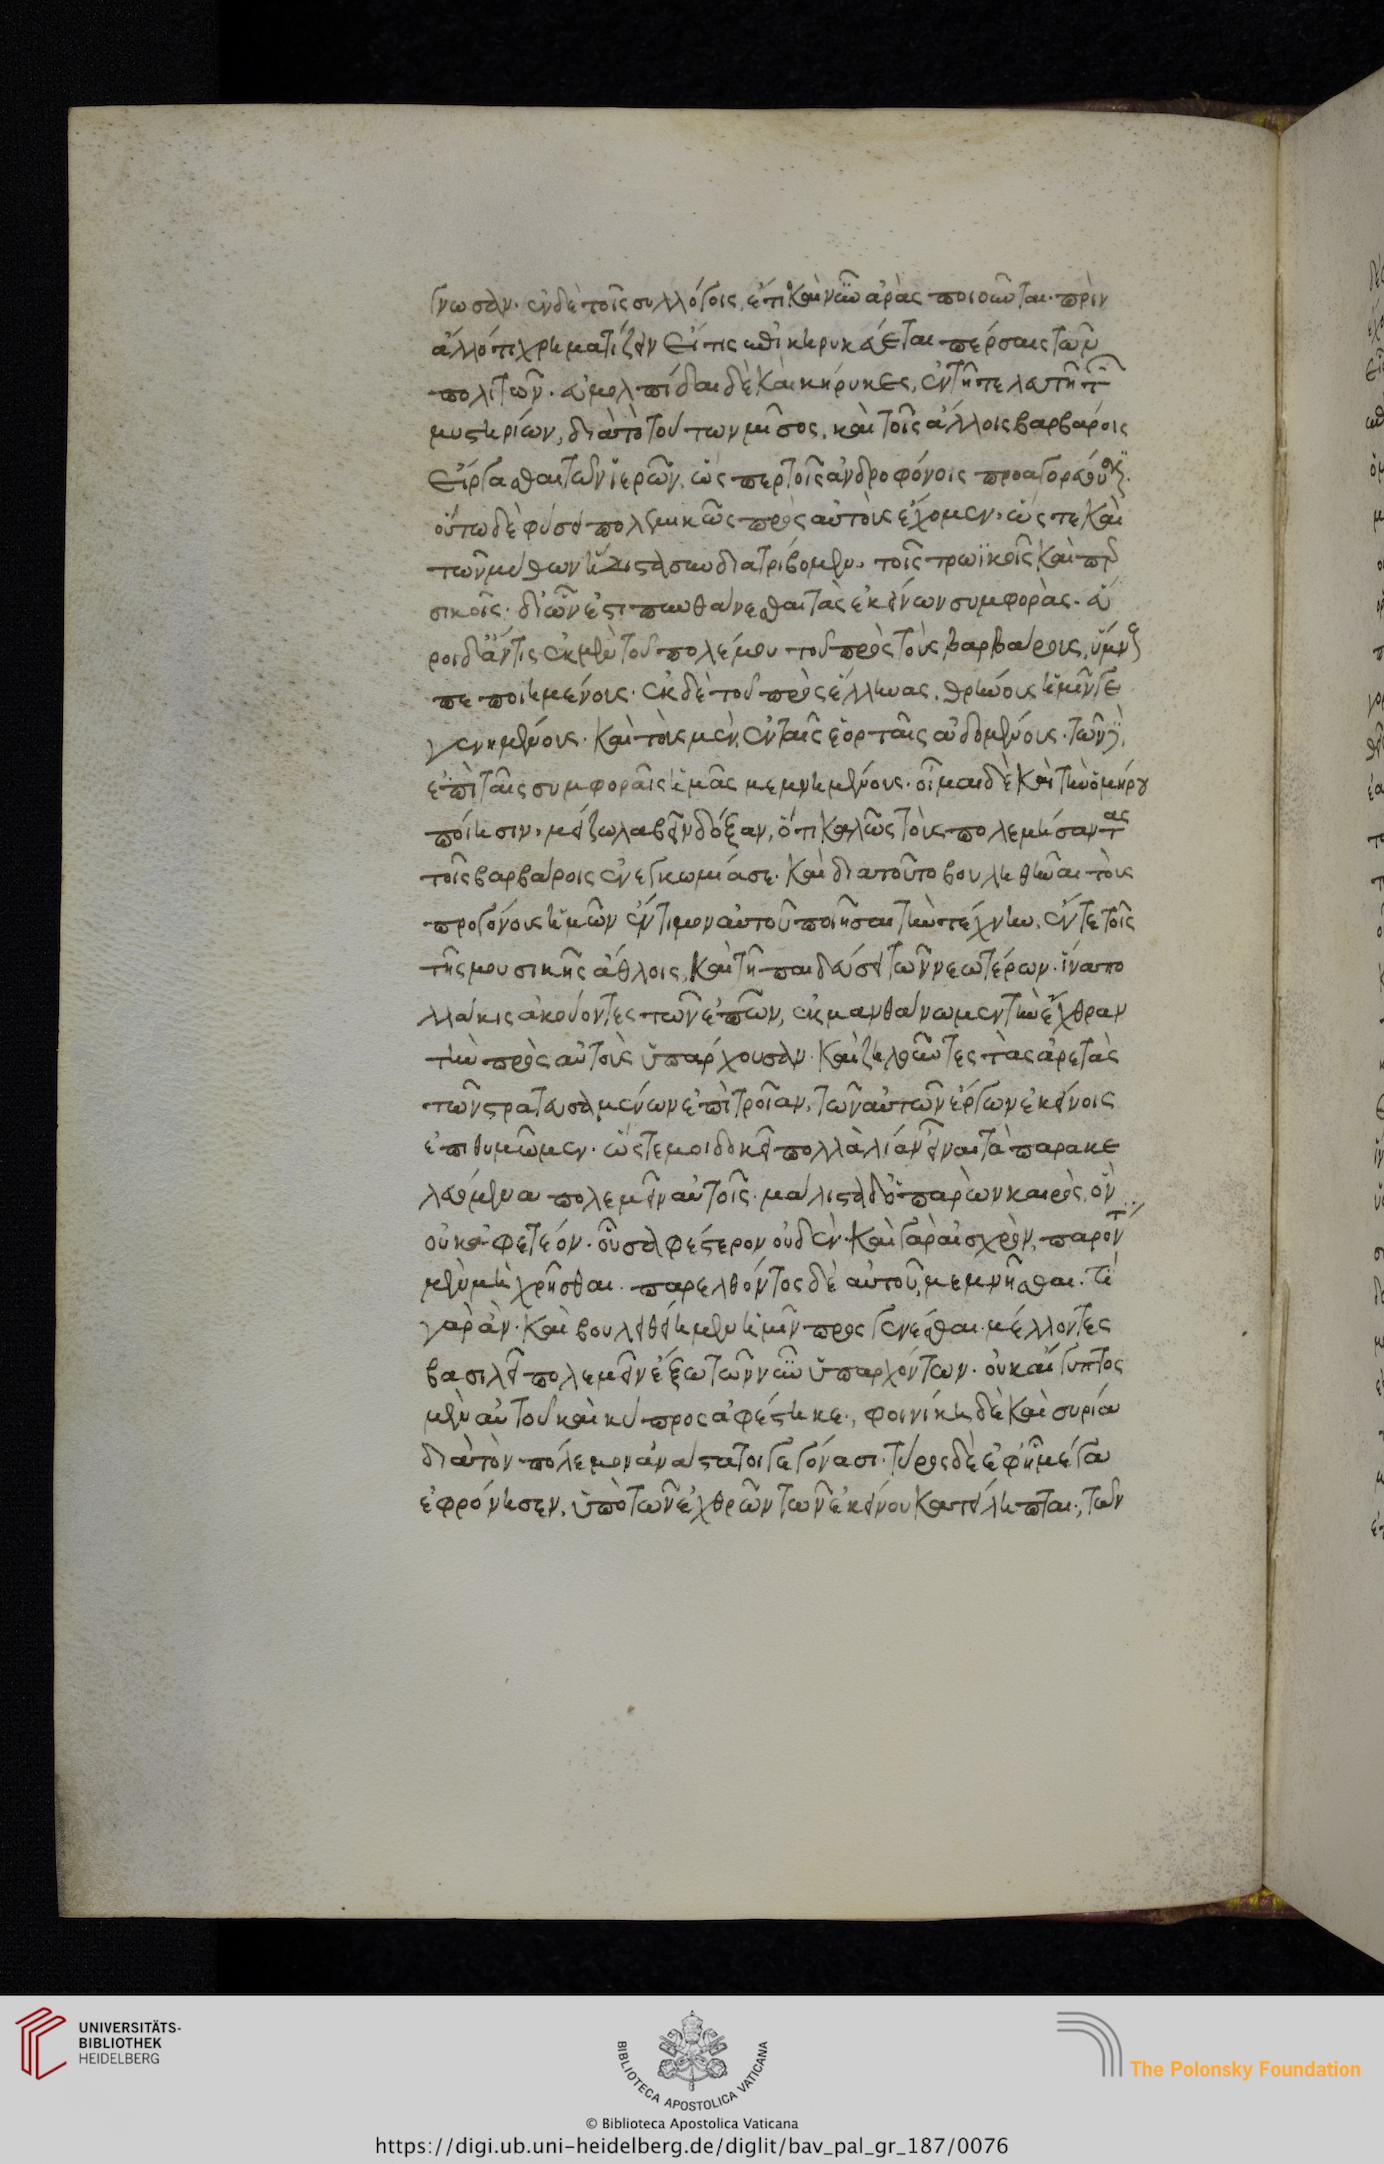 γνωσαν· ἐν δὲ τοῖς συλλόγοις, ἔτι καὶ νῦν ἀρὰς ποιοῦνται· πρὶν
ἄλλό τι χρηματίζειν εἴ τις ἐπικηρυκεύεται πέρσαις τῶν
πολιτῶν· εὐμολπίδαι δὲ καὶ κήρυκες, ἐν τῆ τελετῆ τῶν
μυστηρίων, διὰ τὸ τούτων μῖσος, καὶ τοῖς ἄλλοις βαρβάροις
εἴργεσθαι τῶν ἱερῶν, ὥσπερ τοῖς ἀνδροφόνοις προαγορεύουσιν·
οὕτω δὲ φύσει πολεμικῶς πρὸς αὐτοὺς ἔχομεν, ὥστε καὶ
τῶν μύθων ἥδιστα συνδιατρίβομεν, τοῖς τρωϊκοῖς καὶ περ
σικοῖς· δι' ὧν ἔστι πυνθάνεσθαι τὰς ἐκείνων συμφοράς· εὕ
ροι δ' ἄν τις ἐκ μὲν τοῦ πολέμου τοῦ πρὸς τοὺς βαρβάρους, ὕμνους
πεποιημένους· ἐκ δὲ τοῦ πρὸς ἕλληνας, θρήνους ἡμῖν γε
γενημένους· καὶ τοὺς μὲν, ἐν ταῖς ἑορταῖς ἀδομένους· τῶν δὲ,
ἐπὶ ταῖς συμφοραῖς ἡμᾶς μεμνημένους· οἶμαι δὲ καὶ τὴν ὁμήρου
ποίησιν, μείζω λαβεῖν δόξαν, ὅτι καλῶς τοὺς πολεμήσαντας
τοῖς βαρβάροις ἐνεκωμίασε· καὶ διὰ τοῦτο βουληθῆναι τοὺς
προγόνους ἡμῶν ἔντιμον αὐτοῦ ποιῆσαι τὴν τέχνην, ἔν τε τοῖς
τῆς μουσικῆς ἄθλοις, καὶ τῆ παιδεύσει τῶν νεωτέρων· ἵνα πο
λλάκις ἀκούοντες τῶν ἐπῶν, ἐκμανθάνωμεν τὴν ἔχθραν
τὴν πρὸς αὐτοὺς ὑπάρχουσαν· καὶ ζηλοῦντες τὰς ἀρετὰς
τῶν στρατευσαμένων ἐπὶ τροίαν, τῶν αὐτῶν ἔργων ἐκείνοις
ἐπιθυμῶμεν· ὥστε μοι δοκεῖ πολλὰ λίαν εἶναι τὰ παρακε
λευόμενα πολεμεῖν αὐτοῖς· μάλιστα δ' ὁ παρὼν καιρὸς, ὃν
οὐκ ἀφετέον· οὗ σαφέστερον οὐδέν· καὶ γὰρ αἰσχρὸν, παρόντι
μὲν μὴ χρῆσθαι· παρελθόντος δὲ αὐτοῦ, μεμνῆσθαι· τί
γὰρ ἂν· καὶ βουληθείημεν ἡμῖν προσγενέσθαι· μέλλοντες
βασιλεῖ πολεμεῖν ἔξω τῶν νῦν ὑπαρχόντων· οὐκ αἴγυπτος
μὲν αὐτοῦ καὶ κύπρος ἀφέστηκε, φοινίκη δὲ καὶ συρία
διὰ τὸν πόλεμον ἀνάστατοι γεγόνασι· τύρος δὲ ἐφ' ἧ μέγα
ἐφρόνησεν, ὑπὸ τῶν ἐχθρῶν τῶν ἐκείνου κατείληπται, τῶν
UNIVERSITÄTS-
BIBLIOTHEK
HEIDELBERG
BIBLIOTECA APOSTOLICA VATICANA
The Polonsky Foundation
© Biblioteca Apostolica Vaticana
https://digi.ub.uni-heidelberg.de/diglit/bav_pal_gr_187/0076